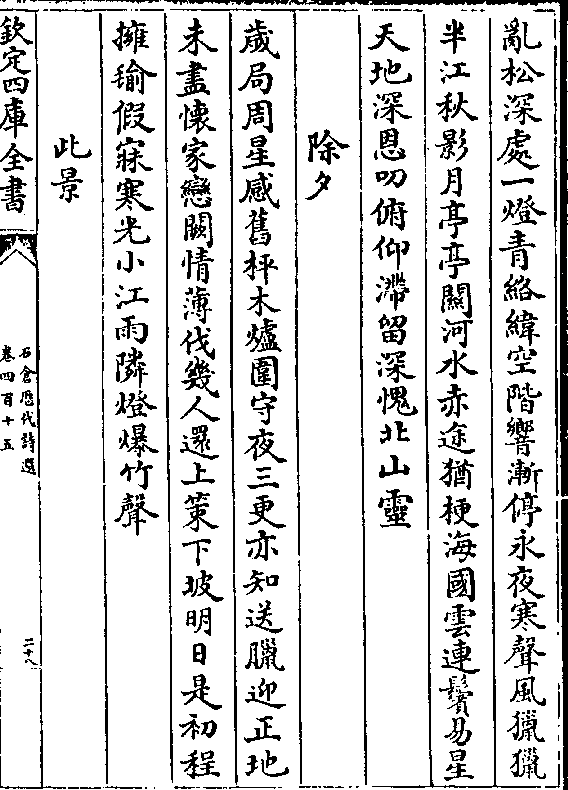 亂松深處一燈青絡緯空階響漸停永夜寒聲風獵獵
半江秋影月亭亭關河水赤途猶梗海國雲連鬢易星
天地深恩叨俯仰滯留深愧北山靈
除夕
歲局周星感舊枰木爐圍守夜三更亦知送臘迎正地
未盡懷家戀闕情薄伐幾人還上策下坡明日是初程
擁瑜假寐寒光小江雨隣燈爆竹聲
此景
欽定四庫全書
石倉歷代詩選
卷四百十五
二十八